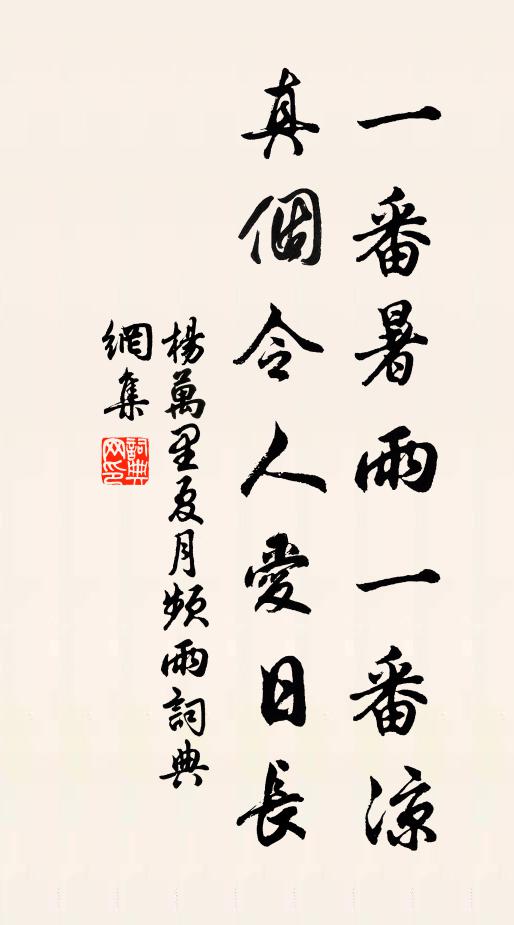 一番暑雨一番涼
真個令人愛日長
楊萬里夏月頻雨詞典
網集
詞典網印